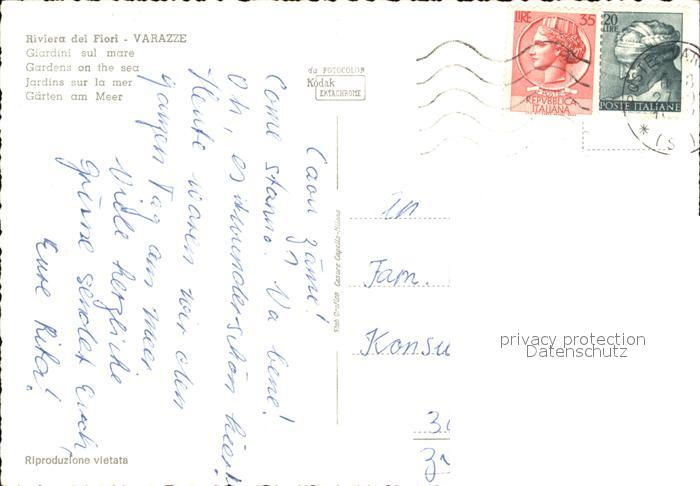 Riviera dei Fiori - VARAZZE
Giardini sul mare
Gardens on the sea
Jardins sur la mer
Gärten am Meer
da FOTOCOLOR
Kodak
EKTACHROME
LIRE 35
REPVBBLICA
ITALIANA
20
LIRE
POSTE ITALIANE
Caou zäme!
Come stanno. Va bene!
Oh, es ist wunderschön hier!
Heute waren wir den
ganzen Tag am Meer
Viele herzliche
Grüsse sendet Euch,
Eure Rita!
An
Fam.
Konsu
privacy protection
Datenschutz
Riproduzione vietata